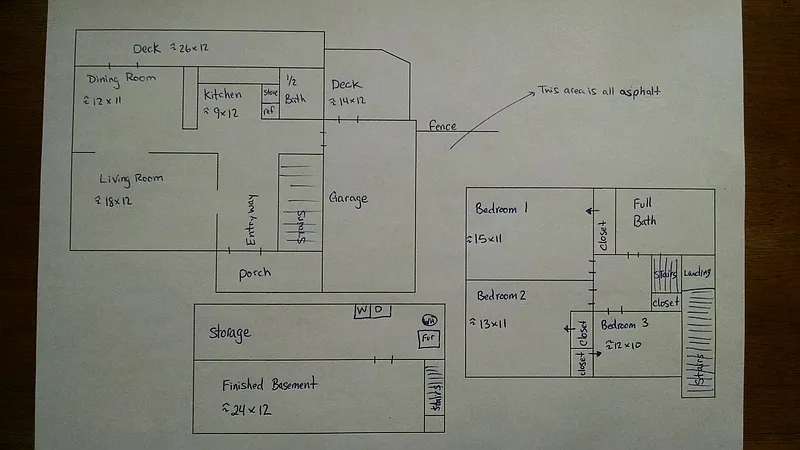 Deck ≈ 26x12
Dining Room
≈ 12x11
Kitchen
≈ 9x12
stove
ref
1/2
Bath
Deck
≈ 14x12
This area is all asphalt
Fence
Living Room
≈ 18x12
Entryway
Stairs
Garage
Porch
Bedroom 1
≈ 15x11
closet
Full
Bath
Stairs
Landing
closet
Bedroom 2
≈ 13x11
closet
closet
Bedroom 3
≈ 12x10
Stairs
Storage
W D
WH
Fur
Finished Basement
≈ 24x12
Stairs